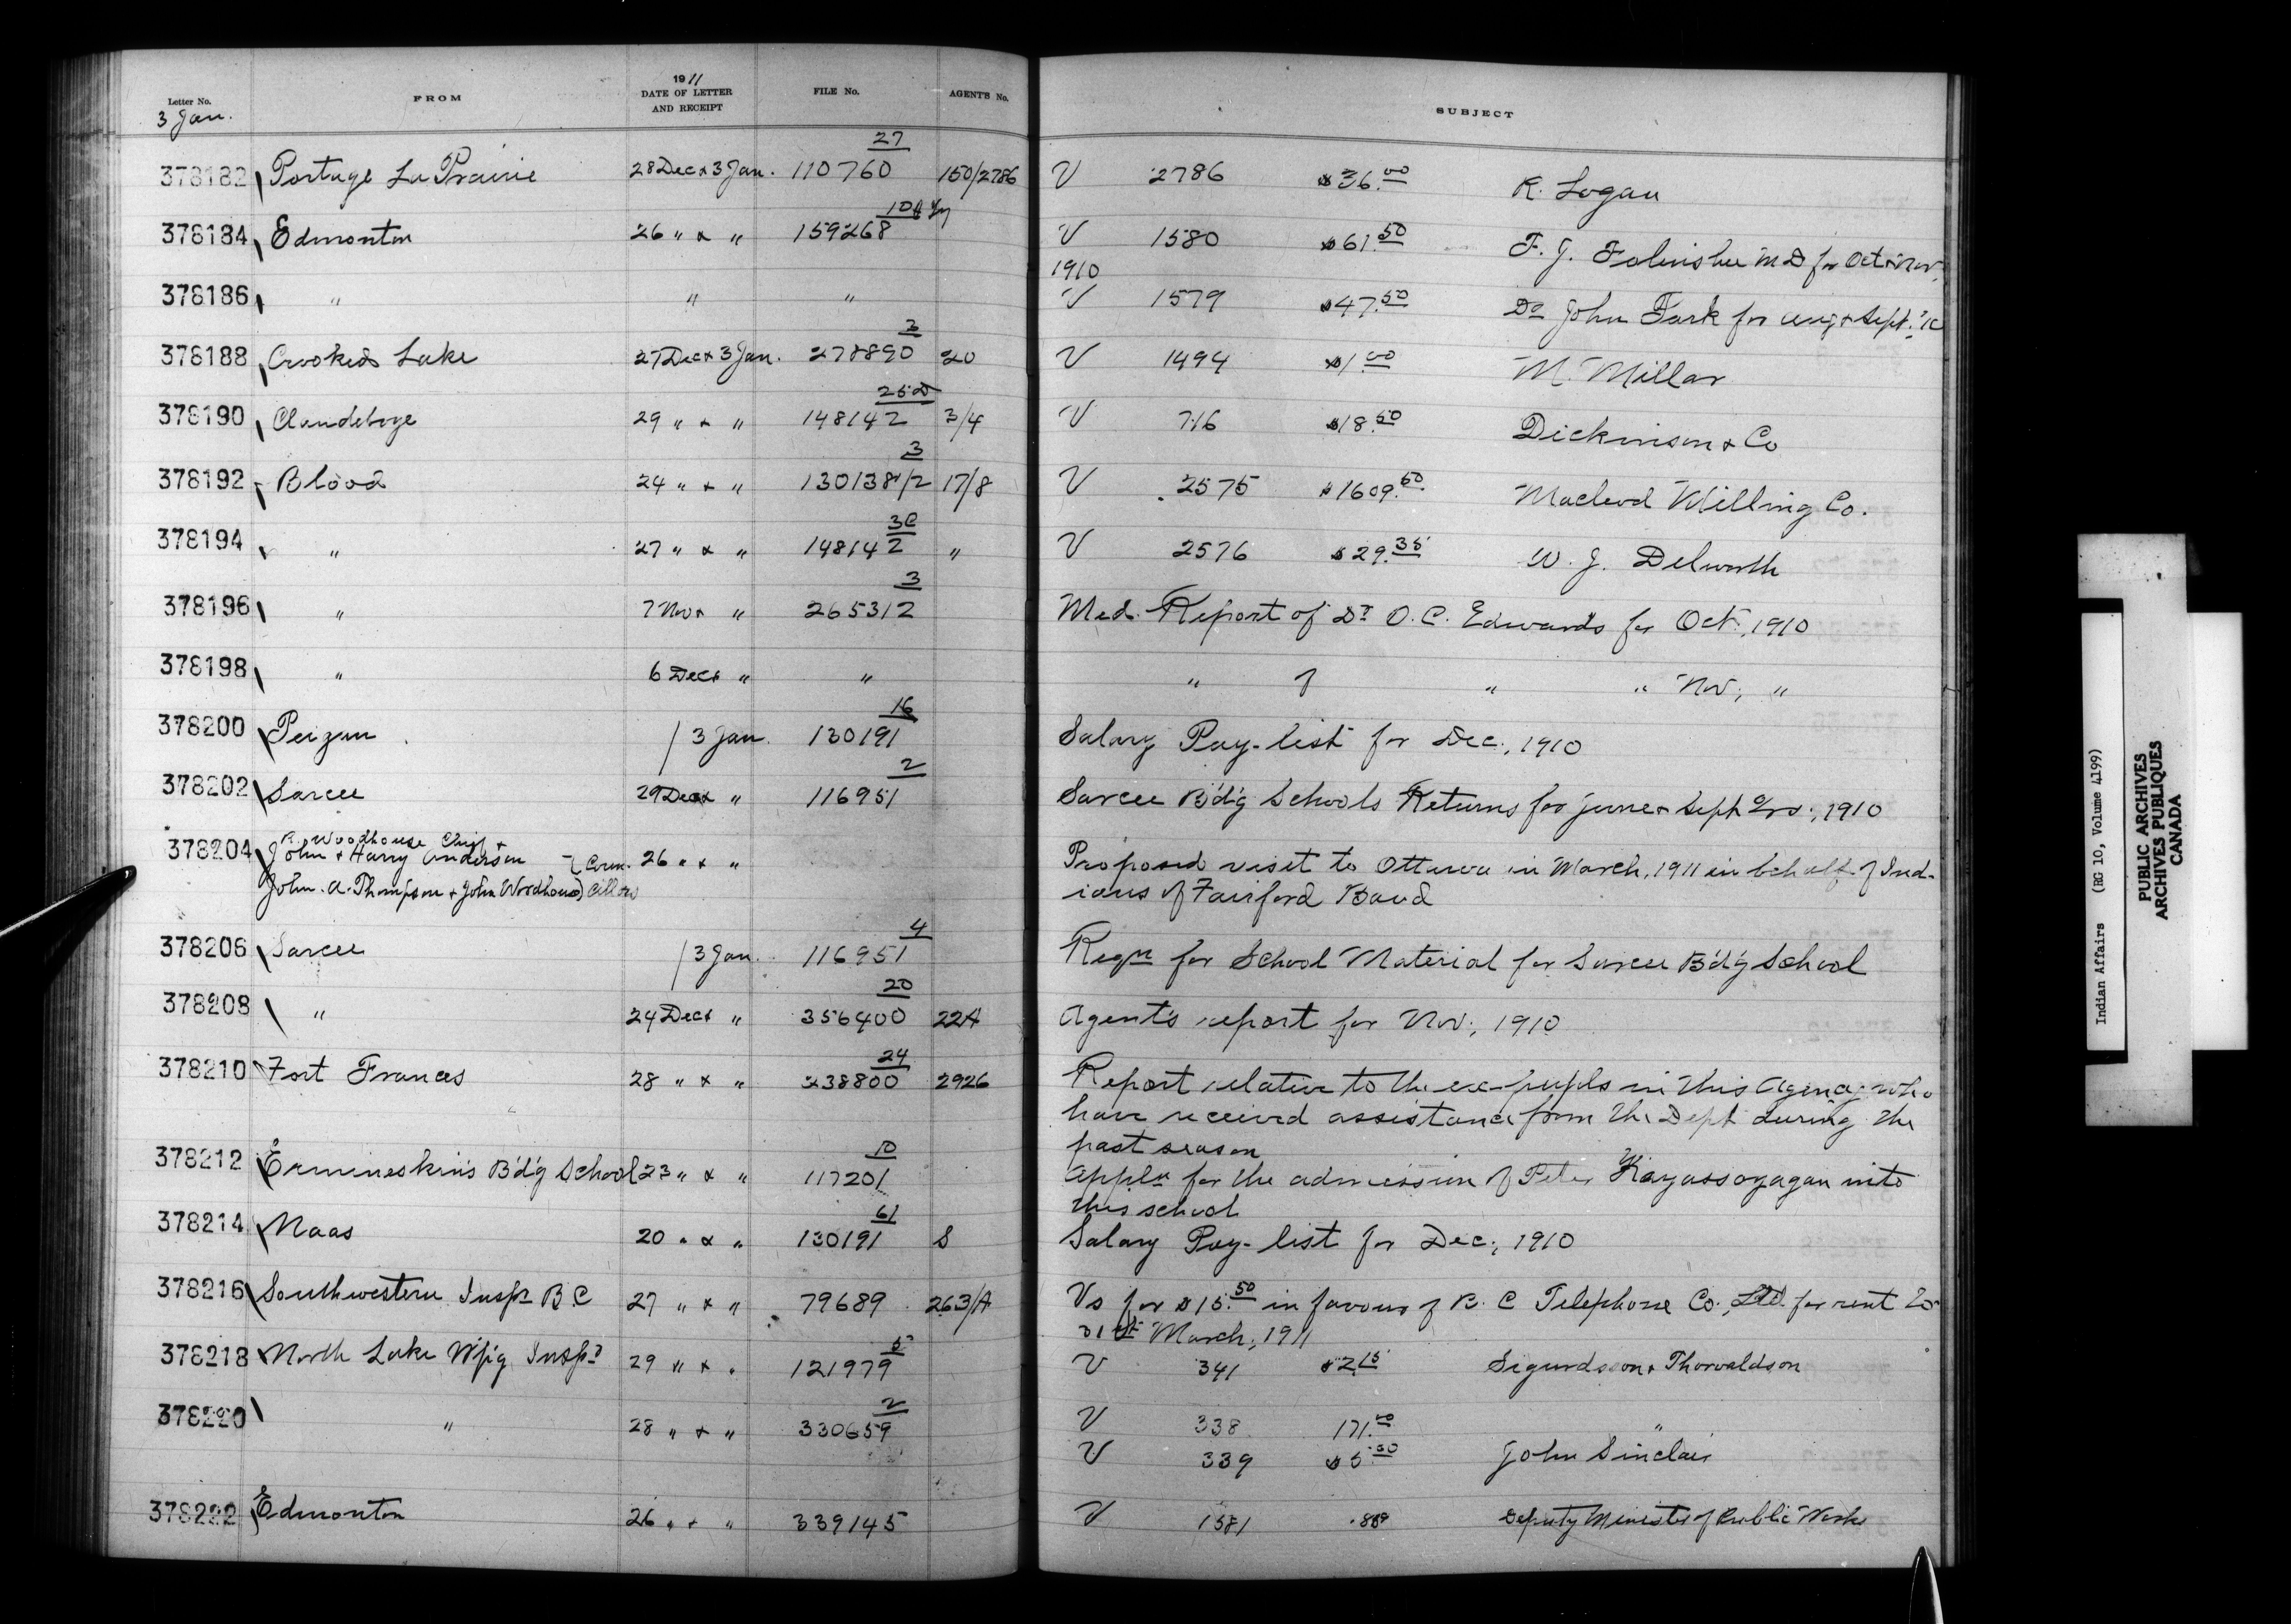 Letter No. FROM 1911 DATE OF LETTER AND RECEIPT FILE No. AGENT'S No. SUBJECT
3 Jan.
378182 Portage La Prairie 28 Dec & 3 Jan. 110760 27 150/2786 V 2786 $36.00 R. Logan
378184 Edmonton 26 " & " 159268 10A V 1580 $61.50 F. J. Folinsbee M D for Oct & Nov
1910
378186 " " " V 1579 $47.50 Dr John Park for Aug & Sept.
378188 Crooked Lake 27 Dec & 3 Jan. 278890 3 20 V 1494 $1.00 M. Millar
378190 Clandeboye 29 " & " 148142 25D 3/4 V 716 $18.50 Dickinson & Co
378192 Blood 24 " & " 130138 1/2 3 17/8 V 2575 $1609.50 Macleod Milling Co.
378194 " 27 " & " 148142 3C " V 2576 $29.35 W. J. Delworth
378196 " 7 Nov & " 265312 3 Med. Report of Dr O. C. Edwards for Oct., 1910
378198 " 6 Dec & " " " " " Nov., "
378200 Peigan 3 Jan. 130191 16 Salary Pay-list for Dec., 1910
378202 Sarcee 29 Dec & " 116951 2 Sarcee B'd'g Schools Returns for June & Sept Qrs., 1910
378204 R. Woodhouse Chief & John & Harry Anderson John A. Thompson & John Woodhouse } Councillors 26 " & " Proposed visit to Ottawa in March, 1911 in behalf of Ind-
ians of Fairford Band
378206 Sarcee 3 Jan. 116951 4 Reqn for School Material for Sarcee B'd'g School
378208 " 24 Dec & " 356400 20 22A Agent's report for Nov., 1910
378210 Fort Frances 28 " & " 238800 24 2926 Report relative to the ex-pupils in this Agency who
have received assistance from the Dept during the
past season
378212 Ermineskin's B'd'g School 23 " & " 117201 10 Appln for the admission of Peter Kayassoyagan into
this school
378214 Naas 20 " & " 130191 61 S Salary Pay-list for Dec., 1910
378216 Southwestern Inspr B.C 27 " & " 79689 263/A Vs for $15.50 in favour of B. C Telephone Co., Ltd. for rent to
31st March, 1911
378218 North Lake W'p'g Insp. 29 " & " 121979 5 V 341 $2.15 Sigurdsson & Thorvaldson
378220 " 28 " & " 330659 2 V 338 171.00 "
V 339 $5.00 John Sinclair
378222 Edmonton 26 " & " 339145 V 1581 Deputy Minister of Public Works
Indian Affairs (RG 10, Volume 4199)
PUBLIC ARCHIVES
ARCHIVES PUBLIQUES
CANADA